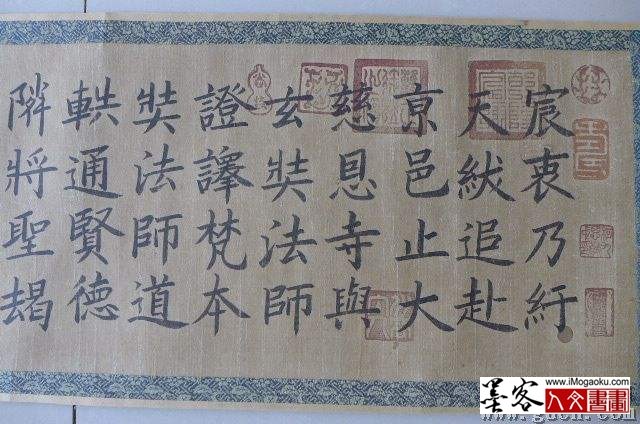 宸衷乃紆
天紱追赴
亰邑止大
慈恩寺與
玄奘法師
證譯梵本
奘法師道
軼通賢德
隣將聖朅
墨客
www.iMogaoku.com
人文書畫